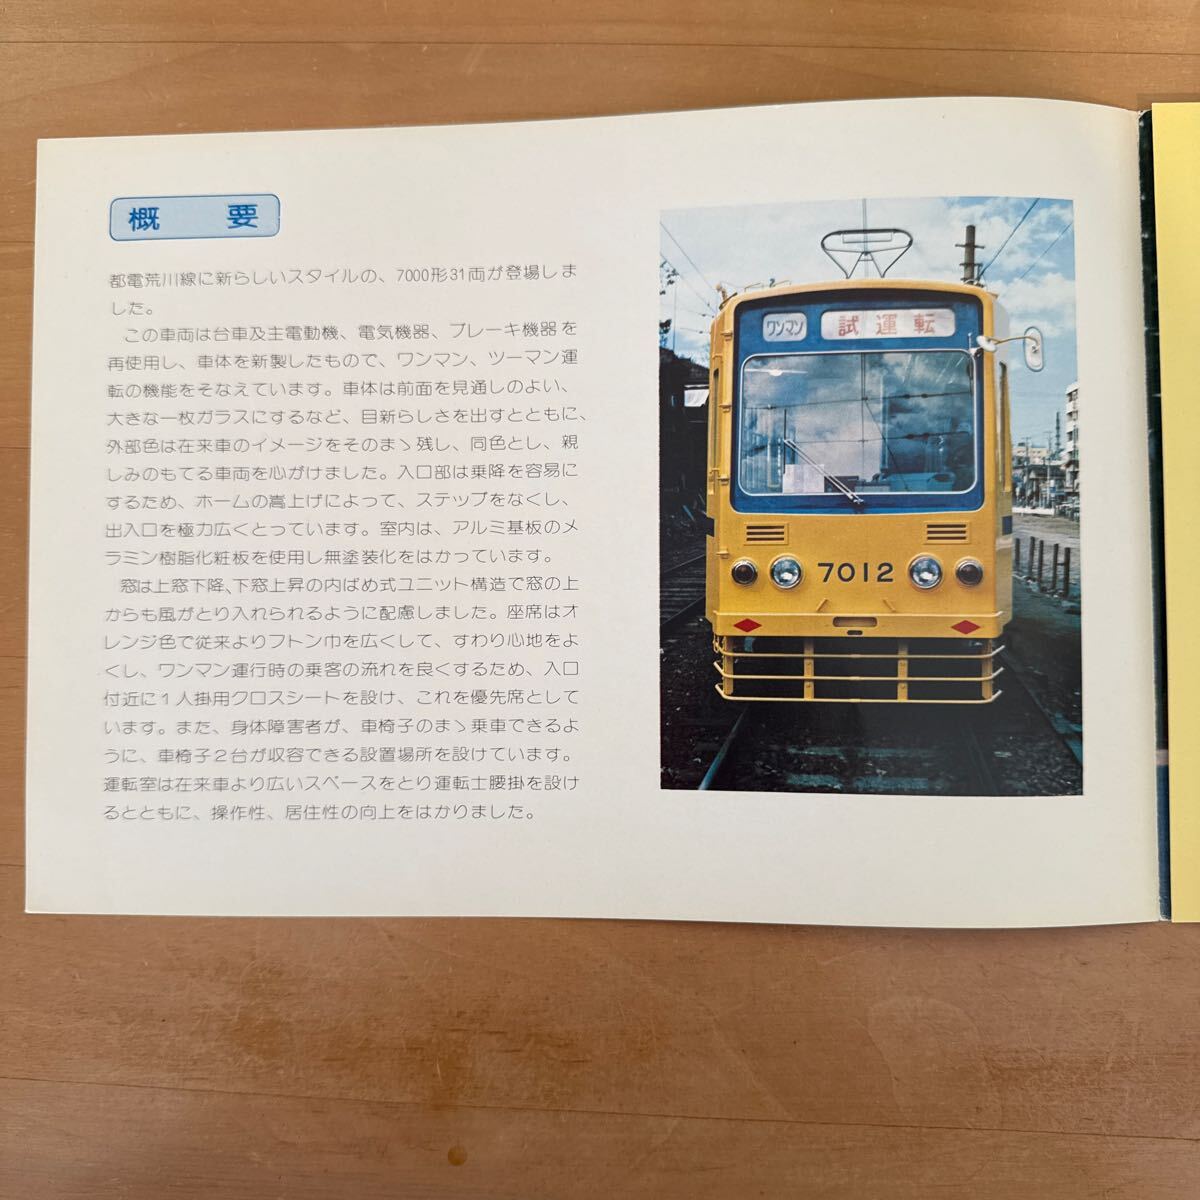 概　要
都電荒川線に新らしいスタイルの、7000形31両が登場しま
した。
この車両は台車及主電動機、電気機器、ブレーキ機器を
再使用し、車体を新製したもので、ワンマン、ツーマン運
転の機能をそなえています。車体は前面を見通しのよい、
大きな一枚ガラスにするなど、目新らしさを出すとともに、
外部色は在来車のイメージをそのまゝ残し、同色とし、親
しみのもてる車両を心がけました。入口部は乗降を容易に
するため、ホームの嵩上げによって、ステップをなくし、
出入口を極力広くとっています。室内は、アルミ基板のメ
ラミン樹脂化粧板を使用し無塗装化をはかっています。
窓は上窓下降、下窓上昇の内ばめ式ユニット構造で窓の上
からも風がとり入れられるように配慮しました。座席はオ
レンジ色で従来よりフトン巾を広くして、すわり心地をよ
くし、ワンマン運行時の乗客の流れを良くするため、入口
付近に1人掛用クロスシートを設け、これを優先席として
います。また、身体障害者が、車椅子のまゝ乗車できるよ
うに、車椅子2台が収容できる設置場所を設けています。
運転室は在来車より広いスペースをとり運転士腰掛を設け
るとともに、操作性、居住性の向上をはかりました。
ワンマン
試運転
7012